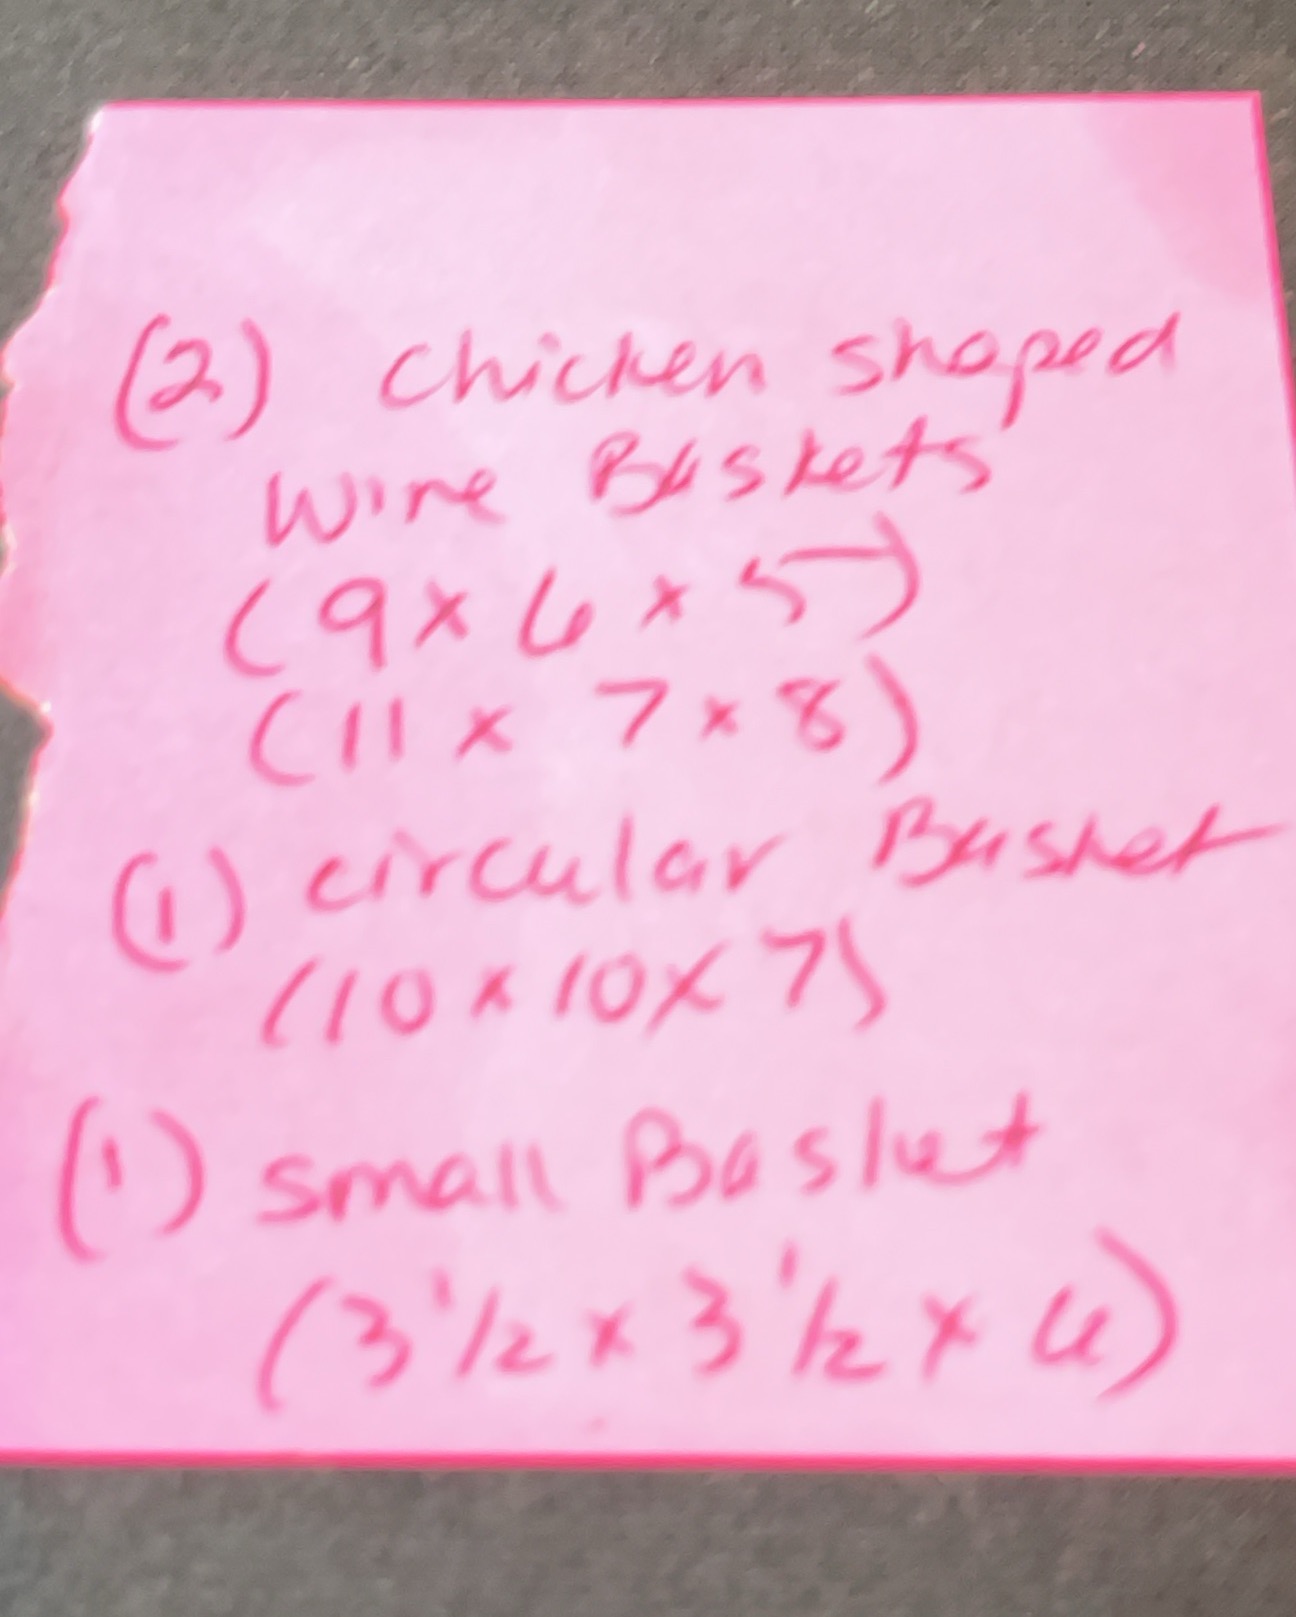 (2) Chicken shaped
Wire Baskets
(9 x 6 x 5)
(11 x 7 x 8)
(1) circular Basket
(10 x 10 x 7)
(1) small Basket
(3 1/2 x 3 1/2 x 6)